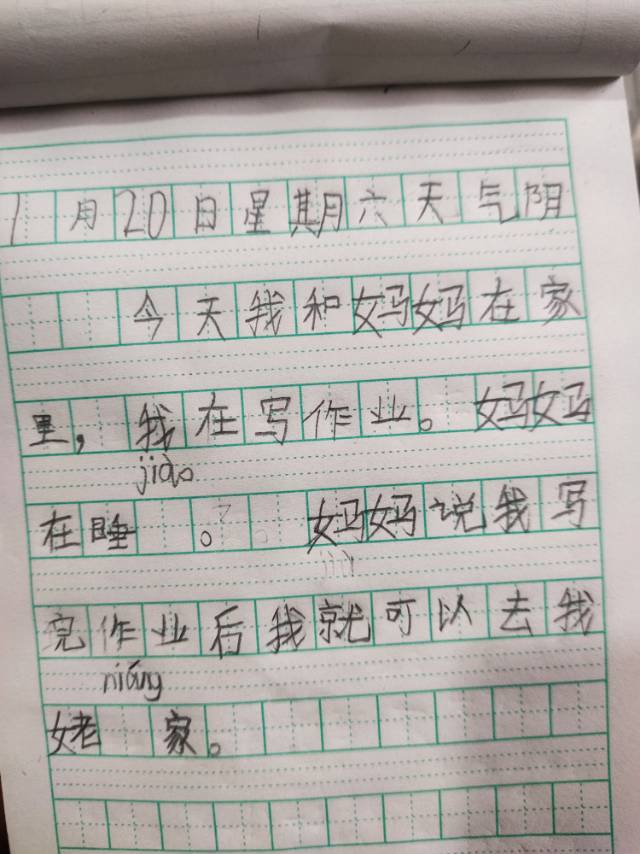 1月20日星期六天气阴
今天我和妈妈在家
里，我在写作业。妈妈
jiào
在睡 。妈妈说我写
完作业后我就可以去我
niáng
姥 家。